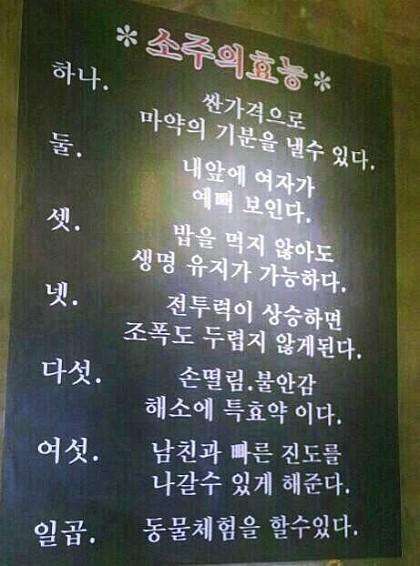 *소주의효능*
하나.
싼가격으로
마약의 기분을 낼수 있다.
둘.
내앞에 여자가
예뻐 보인다.
셋.
밥을 먹지 않아도
생명 유지가 가능하다.
넷.
전투력이 상승하면
조폭도 두렵지 않게된다.
다섯.
손떨림.불안감
해소에 특효약 이다.
여섯.
남친과 빠른 진도를
나갈수 있게 해준다.
일곱.
동물체험을 할수있다.